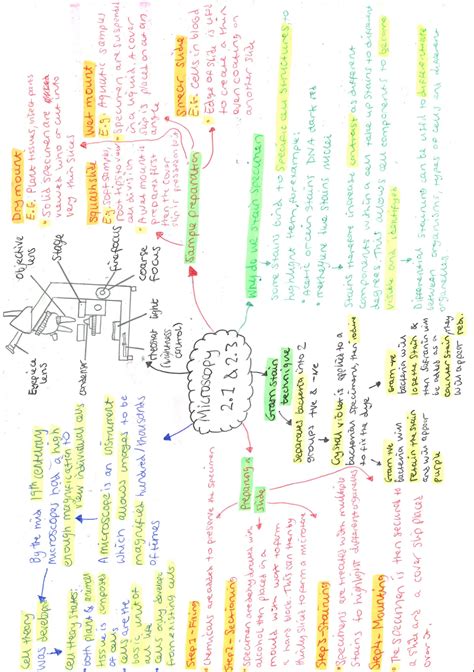 Cell theory
was developed
Cell theory states:
both plants & animal
tissue is composed
of cells
cells are the
basic unit of
all life
cells only develop
from existing cells
By the mid 19th century
microscopes had a high
enough magnification to
view individual cells
A microscope is an instrument
which allows images to be
magnified hundred/thousands
of times
Eyepiece
lens
Objective
lens
Stage
fine focus
coarse
focus
light
(brightness
control)
Microscopy
2.1 & 2.3
Sample preparation
Dry mount
E.g. Plant tissues, insect parts
• Solid specimen are placed
viewed whole or cut into
very thin slices
Squash slide
E.g. Soft samples,
root tips to view
cell division
• A wet mount is
prepared first
then the cover
slip is pressed on
Wet mount
E.g. Aquatic samples
• Specimen are suspended
in a liquid. A cover
slip is placed on at an
angle
Smear slide
E.g. Cells in blood
• Edge of slide is used
to create a thin
even coating on
another slide
Why do we stain specimen
• Some stains bind to specific cell structures to
highlight them, for example:
• acetic orcein stains DNA dark red
• methylene blue stains nuclei
Stains therefore increase contrast as different
components within a cell take up stains to different
degrees that allows cell components to become
visible and identifiable
Differential staining can be used to differentiate
between organisms/types of cells or different
organelles
Gram stain
technique
Separates bacteria into 2
groups +ve & -ve
Crystal violet is applied to a
bacterial specimens, then iodine
to fix the dye
Gram +ve
bacteria will
retain the stain
and will appear
purple
Gram -ve
bacteria will
lose the stain &
then safranin will
be added as a
counter stain they
will appear red.
Preparing a
slide
Step 1 - Fixing
Chemicals are added to preserve the specimen
Step 2 - Sectioning
Specimen are dehydrated in
alcohol then placed in a
mould with wax to form
a hard block. This can then by
thinly sliced to form a microtome
Step 3 - Staining
Specimens are treated with multiple
stains to highlight different organelles
Step 4 - Mounting
The specimen is then secured to
a slide and a cover slip placed